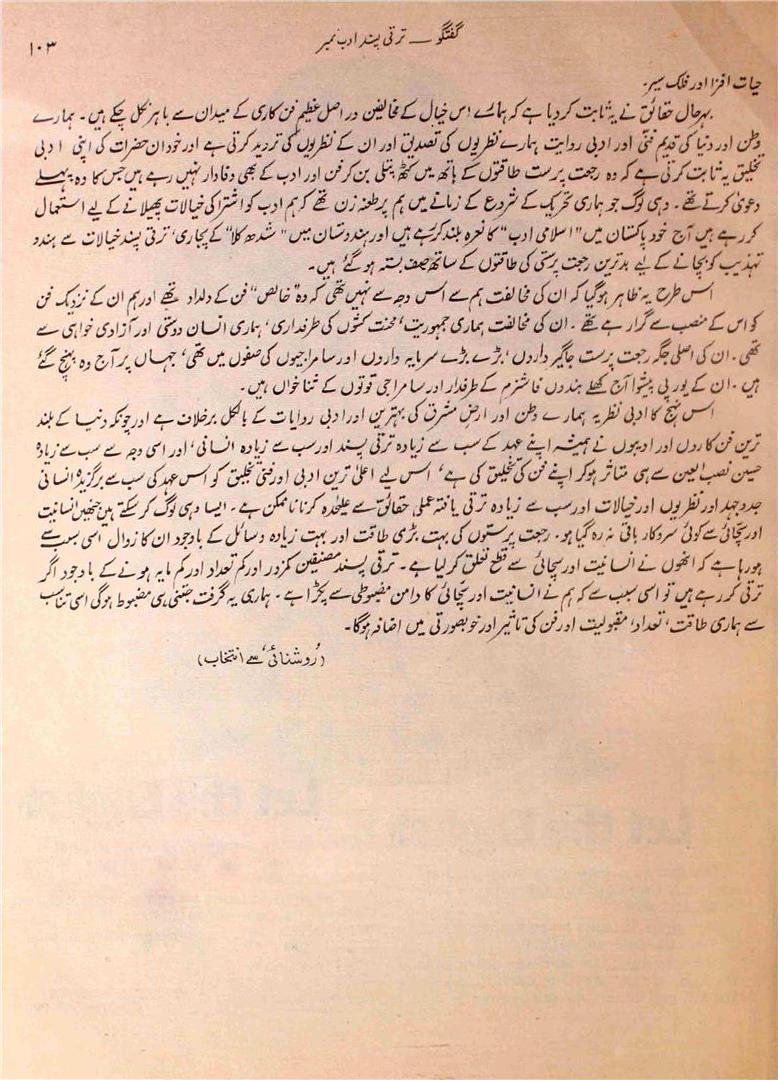 گفتگو — ترقی پسند ادب نمبر
۱۰۳
حیات افزا اور فلک سیر۔
بہرحال حقائق نے یہ ثابت کر دیا ہے کہ ہمارے اس خیال کے مخالفین دراصل عظیم فن کاری کے میدان سے باہر نکل چکے ہیں۔ ہمارے
وطن اور دنیا کی قدیم فنّی اور ادبی روایت ہمارے نظریوں کی تصدیق اور ان کے نظریوں کی تردید کرتی ہے اور خود ان حضرات کی اپنی ادبی
تخلیق یہ ثابت کرتی ہے کہ وہ رجعت پرست طاقتوں کے ہاتھ میں کٹھ پتلی بن کر فن اور ادب کے بھی وفادار نہیں رہے ہیں جس کا وہ پہلے
دعویٰ کرتے تھے۔ وہی لوگ جو ہماری تحریک کے شروع کے زمانے میں ہم پر طعنہ زن تھے کہ ہم ادب کو اشتراکی خیالات پھیلانے کے لیے استعمال
کر رہے ہیں آج خود پاکستان میں "اسلامی ادب" کا نعرہ بلند کر رہے ہیں اور ہندوستان میں "شدھ کلا" کے پجاری، ترقی پسند خیالات سے ہندو
تہذیب کو بچانے کے لیے بدترین رجعت پرستی کی طاقتوں کے ساتھ صف بستہ ہو گئے ہیں۔
اس طرح یہ ظاہر ہو گیا کہ ان کی مخالفت ہم سے اس وجہ سے نہیں تھی کہ وہ "خالص" فن کے دلدادہ تھے اور ہم ان کے نزدیک فن
کو اس کے منصب سے گرا رہے تھے۔ ان کی مخالفت ہماری جمہوریت، محنت کشوں کی طرفداری، ہماری انسان دوستی اور آزادی خواہی سے
تھی۔ ان کی اصلی جگہ رجعت پرست جاگیرداروں، بڑے بڑے سرمایہ داروں اور سامراجیوں کی صفوں میں تھی، جہاں پر آج وہ پہنچ گئے
ہیں۔ ان کے یورپی پیشوا آج کھلے بندوں فاشزم کے طرفدار اور سامراجی قوتوں کے ثنا خواں ہیں۔
اس نہج کا ادبی نظریہ ہمارے وطن اور ارضِ مشرق کی بہترین اور ادبی روایات کے بالکل برخلاف ہے اور چونکہ دنیا کے بلند
ترین فن کاروں اور ادیبوں نے ہمیشہ اپنے عہد کے سب سے زیادہ ترقی پسند اور سب سے زیادہ انسانی، اور اسی وجہ سے سب سے زیادہ
حسین نصب العین سے ہی متاثر ہو کر اپنے فن کی تخلیق کی ہے، اس لیے اعلیٰ ترین ادبی اور فنّی تخلیق کو اس عہد کی سب سے برگزیدہ انسانی
جدوجہد اور نظریوں اور خیالات اور سب سے زیادہ ترقی یافتہ عملی حقائق سے علیٰحدہ کرنا ناممکن ہے۔ ایسا وہی لوگ کر سکتے ہیں جنھیں انسانیت
اور سچائی سے کوئی سروکار باقی نہ رہ گیا ہو۔ رجعت پرستوں کی بہت بڑی طاقت اور بہت زیادہ وسائل کے باوجود ان کا زوال اسی سبب سے
ہو رہا ہے کہ انھوں نے انسانیت اور سچائی سے قطع تعلق کر لیا ہے۔ ترقی پسند مصنفین کمزور اور کم تعداد اور کم مایہ ہونے کے باوجود اگر
ترقی کر رہے ہیں تو اسی سبب سے کہ ہم نے انسانیت اور سچائی کا دامن مضبوطی سے پکڑا ہے۔ ہماری یہ گرفت جتنی ہی مضبوط ہو گی اسی تناسب
سے ہماری طاقت، تعداد، مقبولیت اور فن کی تاثیر اور خوبصورتی میں اضافہ ہو گا۔
('روشنائی' سے انتخاب)